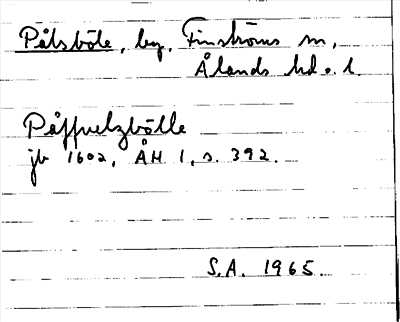 Pålsböle, by, Finströms sn,
Ålands hd o. l.
Påffvelzbölle
jb 1602, ÅH 1, s. 392.
S.A. 1965.